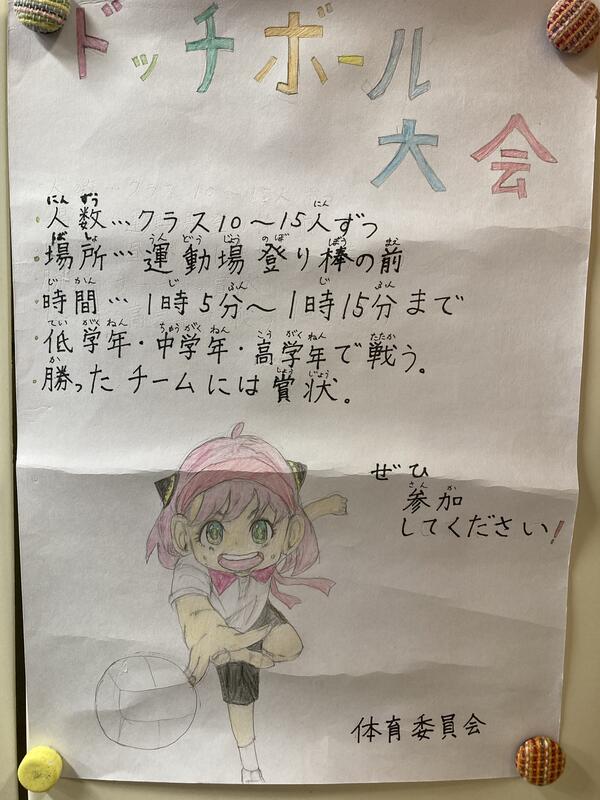 ドッチボール
大会
人数…クラス10〜15人ずつ
場所…運動場 登り棒の前
時間…1時5分〜1時15分まで
低学年・中学年・高学年で戦う。
勝ったチームには賞状。
ぜひ
参加
してください!
体育委員会